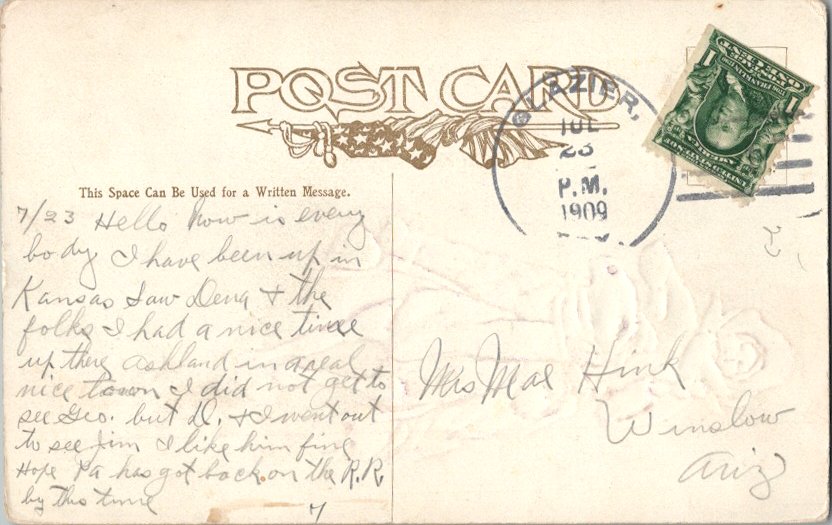 POST CARD
GLAZIER,
JUL
23
P.M.
1909
TEX.
UNITED STATES OF AMERICA
1
1
This Space Can Be Used for a Written Message.
7/23 Hello how is every
body I have been up in
Kansas Saw Dena & the
folks I had a nice time
up there Ashland in a real
nice town I did not get to
see Geo. but D. & I went out
to see Jim I like him fine
Hope Pa has got back on the R.R.
by this time
Mrs Mae Hink
Winslow
Ariz